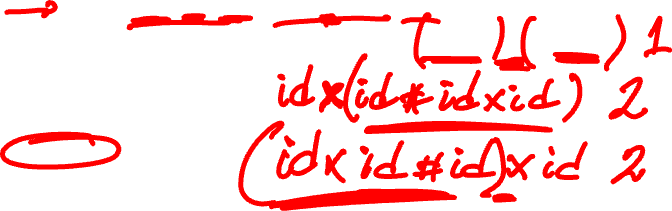 → ___ ___ (__)_(__) 1
id×(id#id×id) 2
(id×id#id)×id 2